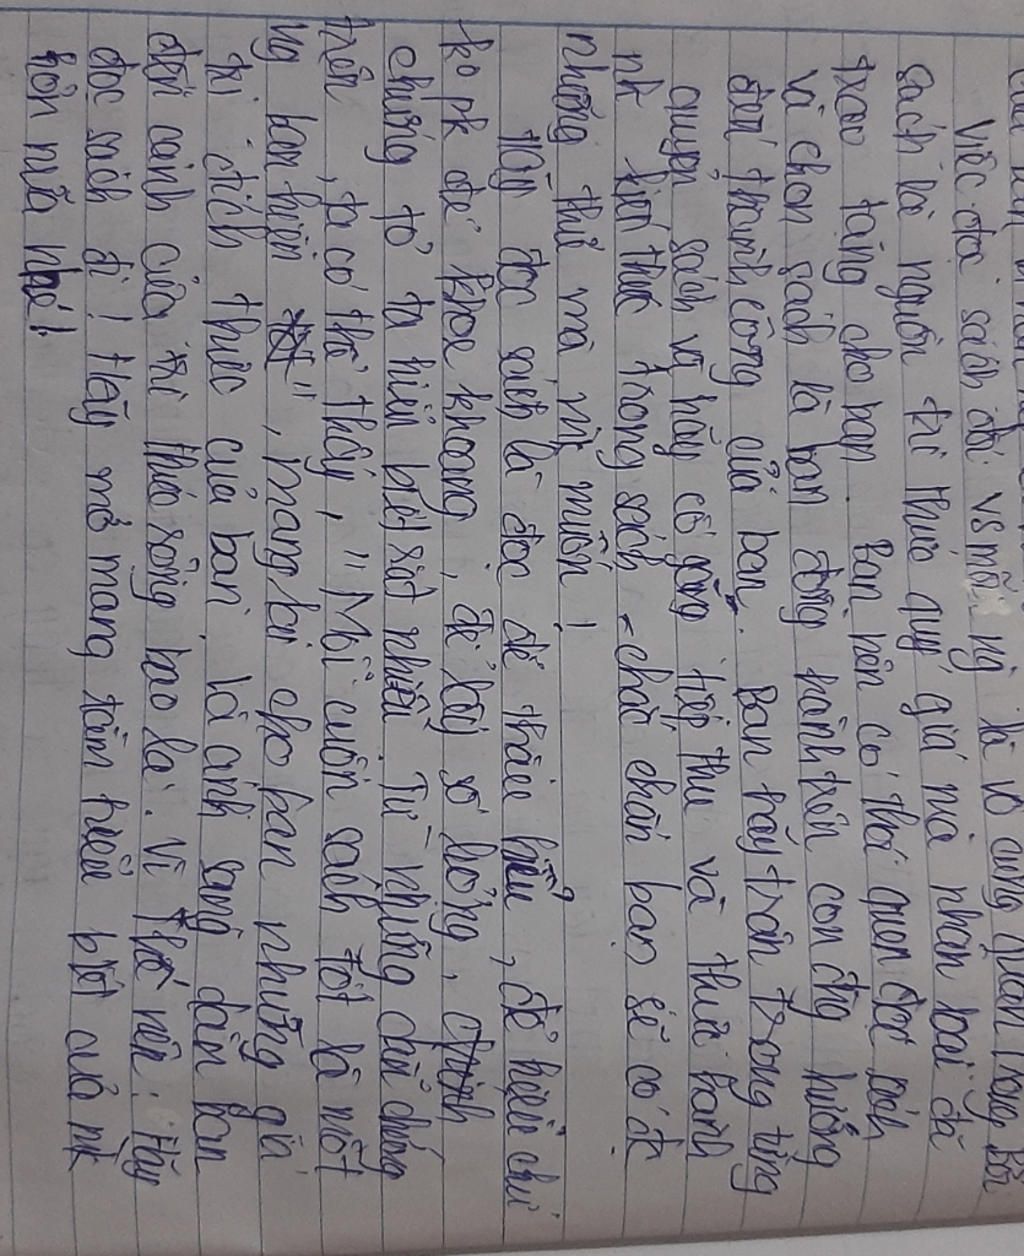 Việc đọc sách đối vs mỗi ng là vô cùng quan trọng. Bởi
sách là nguồn tri thức quý giá mà nhân loại đã
trao tặng cho bạn. Bạn nên có thói quen đọc sách
và chọn sách là bạn đồng hành trên con đg hướng
đến thành công của bạn. Bạn hãy trân trọng từng
quyển sách và hãy cố gắng tiếp thu và thực hành
kiến thức trong sách chắc chắn bạn sẽ có đc
những thứ mà mk muốn!
Hãy đọc sách là đọc để thấu hiểu, để hiểu chứ
ko pk để khoe khoang, để lấy số lượng,
chứng tỏ ta hiểu biết rất nhiều. Từ những dẫn chứng
trên, ta có thể thấy, "Mỗi cuốn sách tốt là một
ng bạn hiền", mang lại cho bạn những giá
trị đích thực của bạn, là ánh sáng dẫn bạn
đến cánh cửa tri thức rộng bao la. Vì thế nên: Hãy
đọc sách đi! Hãy mở mang tầm hiểu biết của mk
hơn nữa nhé!